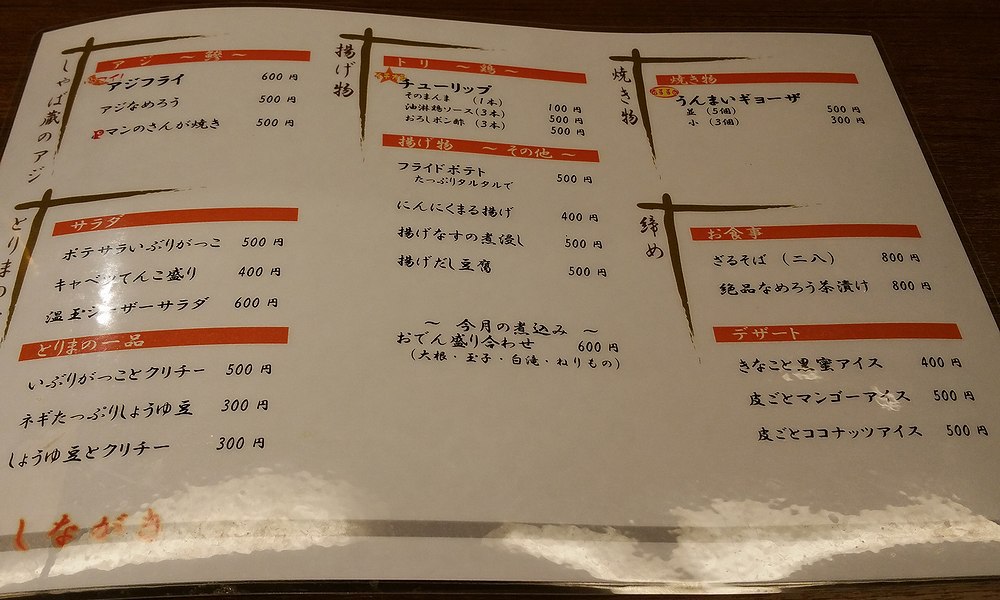 しゃば蔵のアジ
アジ 〜鯵〜
アジフライ 600円
アジなめろう 500円
Pマンのさんが焼き 500円
サラダ
ポテサラいぶりがっこ 500円
キャベツてんこ盛り 400円
温玉シーザーサラダ 600円
とりまの一品
いぶりがっことクリチー 500円
ネギたっぷりしょうゆ豆 300円
しょうゆ豆とクリチー 300円
しながき
揚げ物
トリ 〜鶏〜
チューリップ
そのまんま (1本) 100円
油淋鶏ソース(3本) 500円
おろしポン酢(3本) 500円
揚げ物 〜その他〜
フライドポテト
たっぷりタルタルで 500円
にんにくまる揚げ 400円
揚げなすの煮浸し 500円
揚げだし豆腐 500円
〜 今月の煮込み 〜
おでん盛り合わせ 600円
(大根・玉子・白滝・ねりもの)
焼き物
焼き物
うんまいギョーザ
並 (5個) 500円
小 (3個) 300円
締め
お食事
ざるそば (二八) 800円
絶品なめろう茶漬け 800円
デザート
きなこと黒蜜アイス 400円
皮ごとマンゴーアイス 500円
皮ごとココナッツアイス 500円